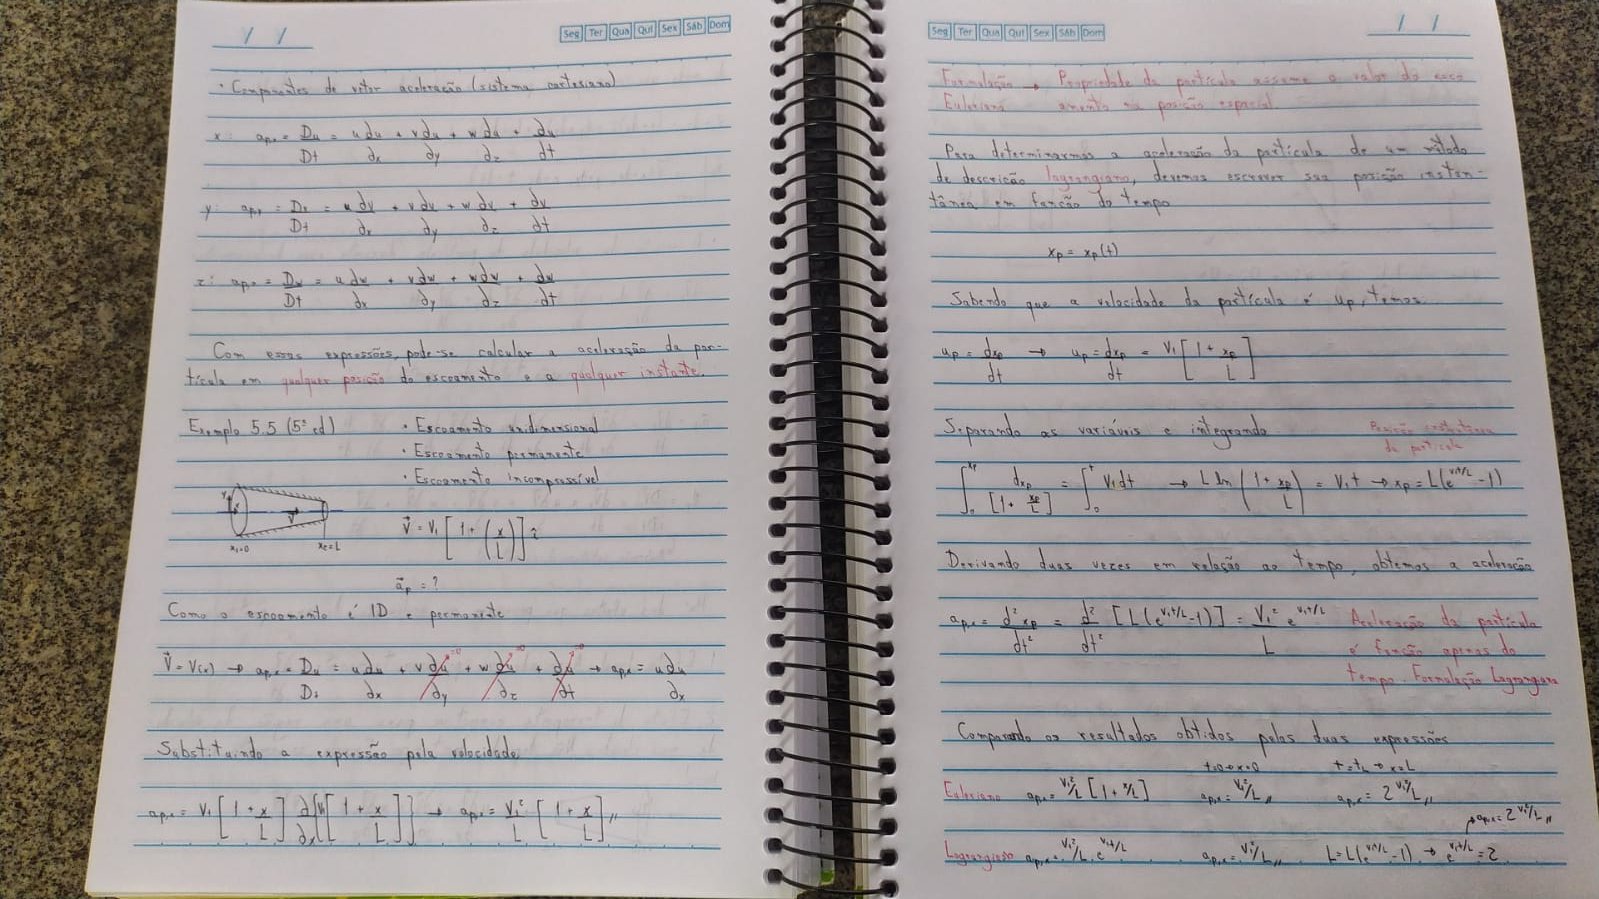 / /
Seg Ter Qua Qui Sex Sáb Dom
• Componentes de vetor aceleração (sistema cartesiano)
x: ap,x = Du/Dt = u ∂u/∂x + v ∂u/∂y + w ∂u/∂z + ∂u/∂t
y: ap,y = Dv/Dt = u ∂v/∂x + v ∂v/∂y + w ∂v/∂z + ∂v/∂t
z: ap,z = Dw/Dt = u ∂w/∂x + v ∂w/∂y + w ∂w/∂z + ∂w/∂t
Com essas expressões, pode-se calcular a aceleração da par-
tícula em qualquer posição do escoamento e a qualquer instante.
Exemplo 5.5 (5ª ed)
• Escoamento unidimensional
• Escoamento permanente
• Escoamento incompressível
x₁=0
x₂=L
V⃗ = V₁ [1 + (x/L)] î
a⃗p = ?
Como o escoamento é 1D e permanente
V⃗ = V(x) → ap,x = Du/Dt = u ∂u/∂x + v ∂u/∂y =0 + w ∂u/∂z =0 + ∂u/∂t =0 → ap,x = u ∂u/∂x
Substituindo a expressão pela velocidade
ap,x = V₁ [1 + x/L] ∂/∂x {V₁ [1 + x/L]} → ap,x = V₁²/L [1 + x/L] //
Seg Ter Qua Qui Sex Sáb Dom
/ /
Formulação → Propriedade da partícula assume o valor do esco
Euleriana amento na posição espacial
Para determinarmos a aceleração da partícula de um método
de descrição lagrangiano, devemos escrever sua posição instan-
tânea em função do tempo
xp = xp(t)
Sabendo que a velocidade da partícula é up, temos
up = dxp/dt → up = dxp/dt = V₁ [1 + xp/L]
Separando as variáveis e integrando
Posição instantânea
da partícula
∫₀^xp dxp/[1 + xp/L] = ∫₀^t V₁dt → L ln (1 + xp/L) = V₁t → xp = L(e^(V₁t/L) - 1)
Derivando duas vezes em relação ao tempo, obtemos a aceleração
ap,x = d²xp/dt² = d²/dt² [L(e^(V₁t/L) - 1)] = V₁²/L e^(V₁t/L)
Aceleração da partícula
é função apenas do
tempo. Formulação Lagrangiana
Comparando os resultados obtidos pelas duas expressões
t=0 → x=0 t=t_L → x=L
Euleriano ap,x = V₁²/L [1 + x/L] ap,x = V₁²/L // ap,x = 2 V₁²/L //
↱ ap,x = 2 V₁²/L //
Lagrangiano ap,x = V₁²/L e^(V₁t/L) ap,x = V₁²/L // L = L(e^(V₁t/L) - 1) → e^(V₁t/L) = 2